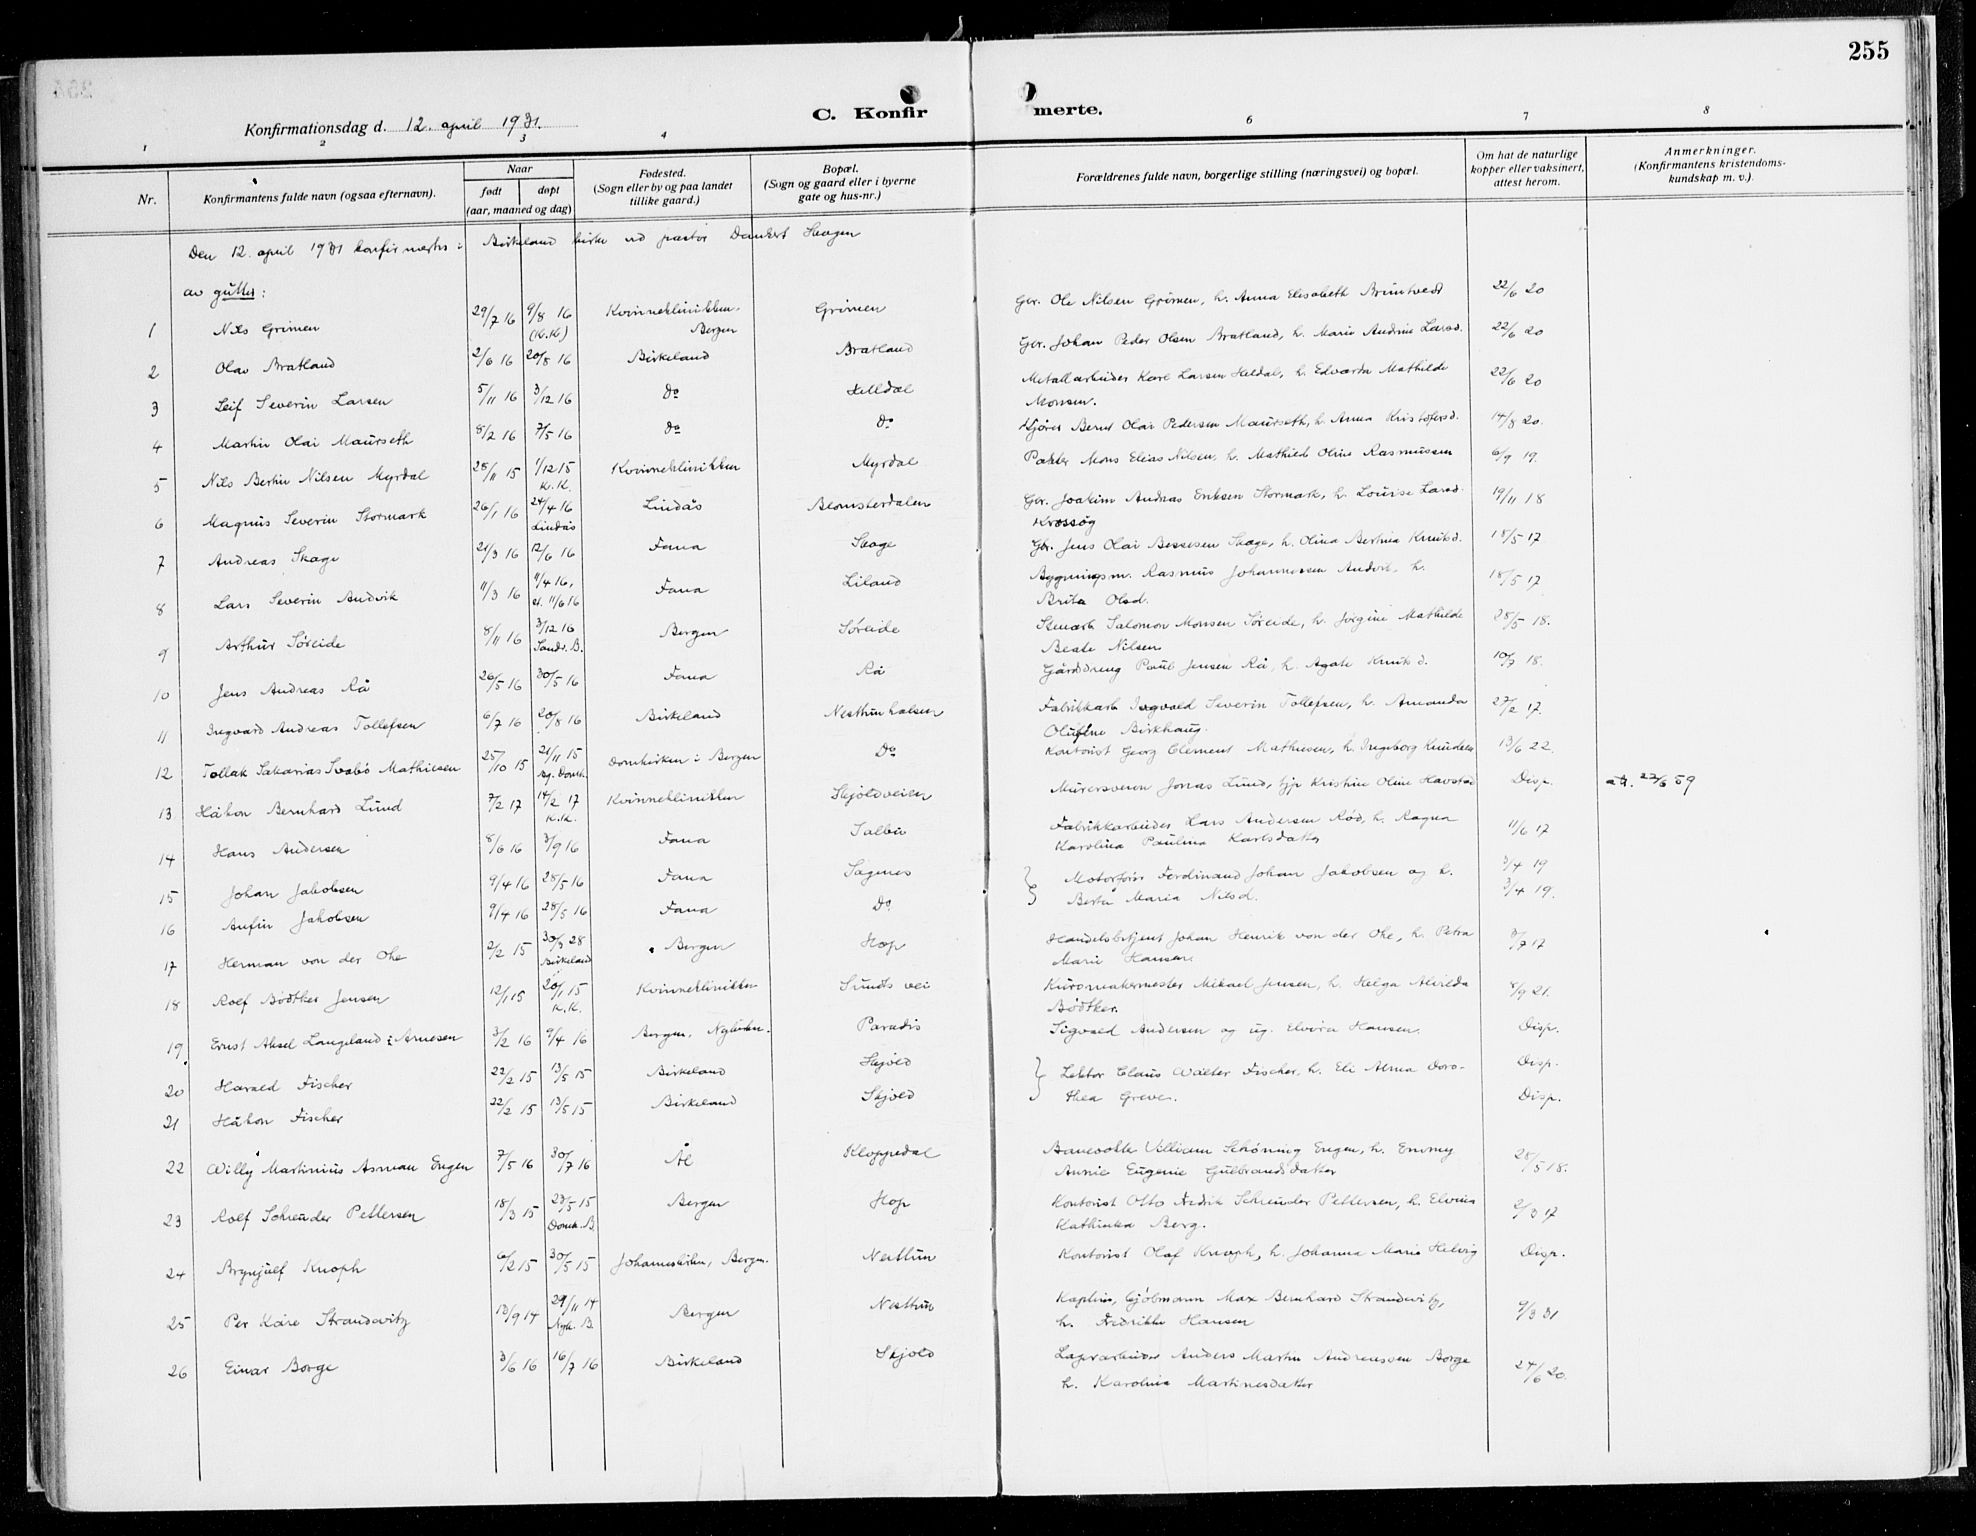 255
C. Konfirmerte.
Konfirmationsdag d. 12. april 1931.
1 2 3 4 6 7 8
Nr.
Konfirmantens fulde navn (ogsaa efternavn).
Naar
født døpt
(aar, maaned og dag)
Fødested.
(Sogn eller by og paa landet
tillike gaard.)
Bopæl.
(Sogn og gaard eller i byerne
gate og hus-nr.)
Forældrenes fulde navn, borgerlige stilling (næringsvei) og bopæl.
Om hat de naturlige
kopper eller vaksinert,
attest herom.
Anmerkninger.
(Konfirmantens kristendoms-
kundskap m. v.).
Den 12. april 1931 konfirmertes i Birkeland kirke ved pastor Dankert Skagen
av gutter:
1 Nils Grimen 29/7 16 9/8 16 (K.K) Kvinneklinikken, Bergen Grimen Gbr. Ole Nilsen Grimen, h. Anna Elisabeth Bruntvedt 22/6 20
2 Olav Bratland 2/6 16 20/8 16 Birkeland Bratland Gbr. Johan Peder Olsen Bratland, h. Marie Andrine Larsd. 22/6 20
3 Leif Severin Larsen 5/11 16 3/12 16 Do Helldal Metallarbeider Karl Larsen Heldal, h. Edvarda Mathilde
Monsen. 22/6 20
4 Martin Olai Maurseth 8/2 16 7/5 16 Do Do Kjører Bernt Olai Pedersen Maurseth, h. Anna Kristofersd. 14/8 20.
5 Nils Bertin Nilsen Myrdal 28/11 15 1/12 15 K.K. Kvinneklinikken Myrdal Pakker Mons Elias Nilsen, h. Mathilde Oline Rasmussen 6/9 19.
6 Magnus Severin Stormark 26/1 16 24/4 16 Lindås Lindås Blomsterdalen Gbr. Joakim Andreas Eriksen Stormark, h. Louise Larsd.
Krossøg 19/11 18
7 Andreas Skage 21/3 16 12/6 16 Fana Skage Gbr. Jens Olai Bessesen Skage, h. Olina Bertina Knutsd. 18/5 17
8 Lars Severin Andvik 11/3 16 11/4 16, st. 11/6 16 Fana Liland Bygningsm. Rasmus Johannessen Andvik, h.
Brita Olsd. 18/5 17
9 Arthur Søreide 8/11 16 3/12 16 Sandv. B. Bergen Søreide Stenarb Salomon Monsen Søreide, h. Jørgine Mathilde
Beate Nilsen 28/5 18.
10 Jens Andreas Rå 26/5 16 30/5 16 Fana Rå Gårddreng Paul Jensen Rå, h. Agate Knutsd. 10/7 18.
11 Ingvard Andreas Tollefsen 6/7 16 20/8 16 Birkeland Nesttunhalsen Fabrikkarb Ingvald Severin Tollefsen, h. Amanda
Olufine Birkhaug. 27/2 17.
12 Tollak Sakarias Svabø Mathiesen 25/10 15 21/11 15 Bg. Domk. Domkirken i Bergen Do Kontorist Georg Clement Mathiesen, h. Ingeborg Knudsen 13/6 22.
13 Håkon Bernhard Lund 7/2 17 14/2 17 K.K. Kvinneklinikken Skjoldveien Murersvenn Jonas Lund, tjp Kristine Oline Havstad Disp. att. 22/6 59
14 Hans Andersen 8/6 16 3/9 16 Fana Salbu Fabrikkarbeider Lars Andersen Rød, h. Ragna
Karolina Paulina Karlsdatter 11/6 17
15 Johan Jakobsen 9/4 16 28/5 16 Fana Sagenes Motorfører Ferdinand Johan Jakobsen og h. 3/4 19
16 Anfin Jakobsen 9/4 16 28/5 16 Fana Do Berta Maria Nilsd. 3/4 19.
17 Herman von der Ohe 2/2 15 30/3 28 Birkeland Bergen Hop Handelsbetjent Johan Henrik von der Ohe, h. Petra
Marie Hansen. 3/7 17
18 Rolf Bødtker Jensen 12/1 15 20/1 15 K.K. Kvinneklinikken Sunds vei Kurvmakermester Mikael Jensen, h. Helga Alvilda
Bødtker. 8/9 21.
19 Ernst Aksel Langeland i Arnesen 3/2 16 9/4 16 Bergen, Nykirken. Paradis Sigvald Andersen og ug. Elvira Hansen. Disp.
20 Harald Fischer 22/2 15 13/5 15 Birkeland Skjold Lektor Claus Walter Fischer, h. Eli Alma Doro- Disp.
21 Håkon Fischer 22/2 15 13/5 15 Birkeland Skjold thea Greve. Disp.
22 Willy Martinius Asman Engen 7/5 16 30/7 16 Ål Kloppedal Banevokte Villiam Schøning Engen, h. Emmy
Annie Eugenie Gulbrandsdatter 28/5 18.
23 Rolf Schreuder Pettersen 18/3 15 23/5 15 Domk. B. Bergen Hop Kontorist Otto Fredrik Schreuder Pettersen, h. Elvina
Kathinka Berg. 2/3 17
24 Brynjulf Knoph 6/2 15 30/5 15 Johanneskirken, Bergen. Nesttun Kontorist Olaf Knoph, h. Johanna Marie Helvig Disp.
25 Per Kåre Strandvitz 13/9 14 29/11 14 Nyk. B. Bergen Nesttun Kaptein, Max Bernhard Strandvitz,
h. Fredrikke Hansen 9/3 31
26 Einar Borge 3/6 16 16/7 16 Birkeland Skjold Lagerarbeider Anders Martin Andreassen Borge
h. Karoline Martinesdatter 24/6 20.